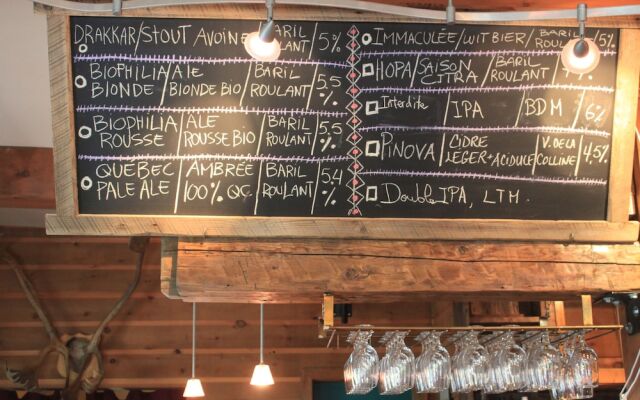 DRAKKAR/STOUT AVOINE BARIL ROULANT 5%
BIOPHILIA BLONDE ALE BLONDE BIO BARIL ROULANT 5,5 %
BIOPHILIA ROUSSE ALE ROUSSE BIO BARIL ROULANT 5,5 %
QUEBEC PALE ALE AMBRÉE 100% QC. BARIL ROULANT 5,4 %
IMMACULÉE/WIT BIER/BARIL ROULANT 5%
HOPA SAISON CITRA BARIL ROULANT
Interdite IPA BDM 6%
PINOVA CIDRE LÉGER+ACIDULÉ V. DE LA COLLINE 4,5%
Double IPA, LTM.